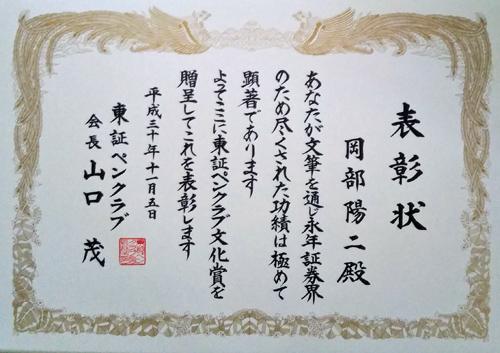 表彰状
岡部陽二殿
あなたが文筆を通じ永年証券界
のため尽くされた功績は極めて
顕著であります
よってここに東証ペンクラブ文化賞を
贈呈してこれを表彰します
平成三十年十一月五日
東証ペンクラブ
会長 山口 茂